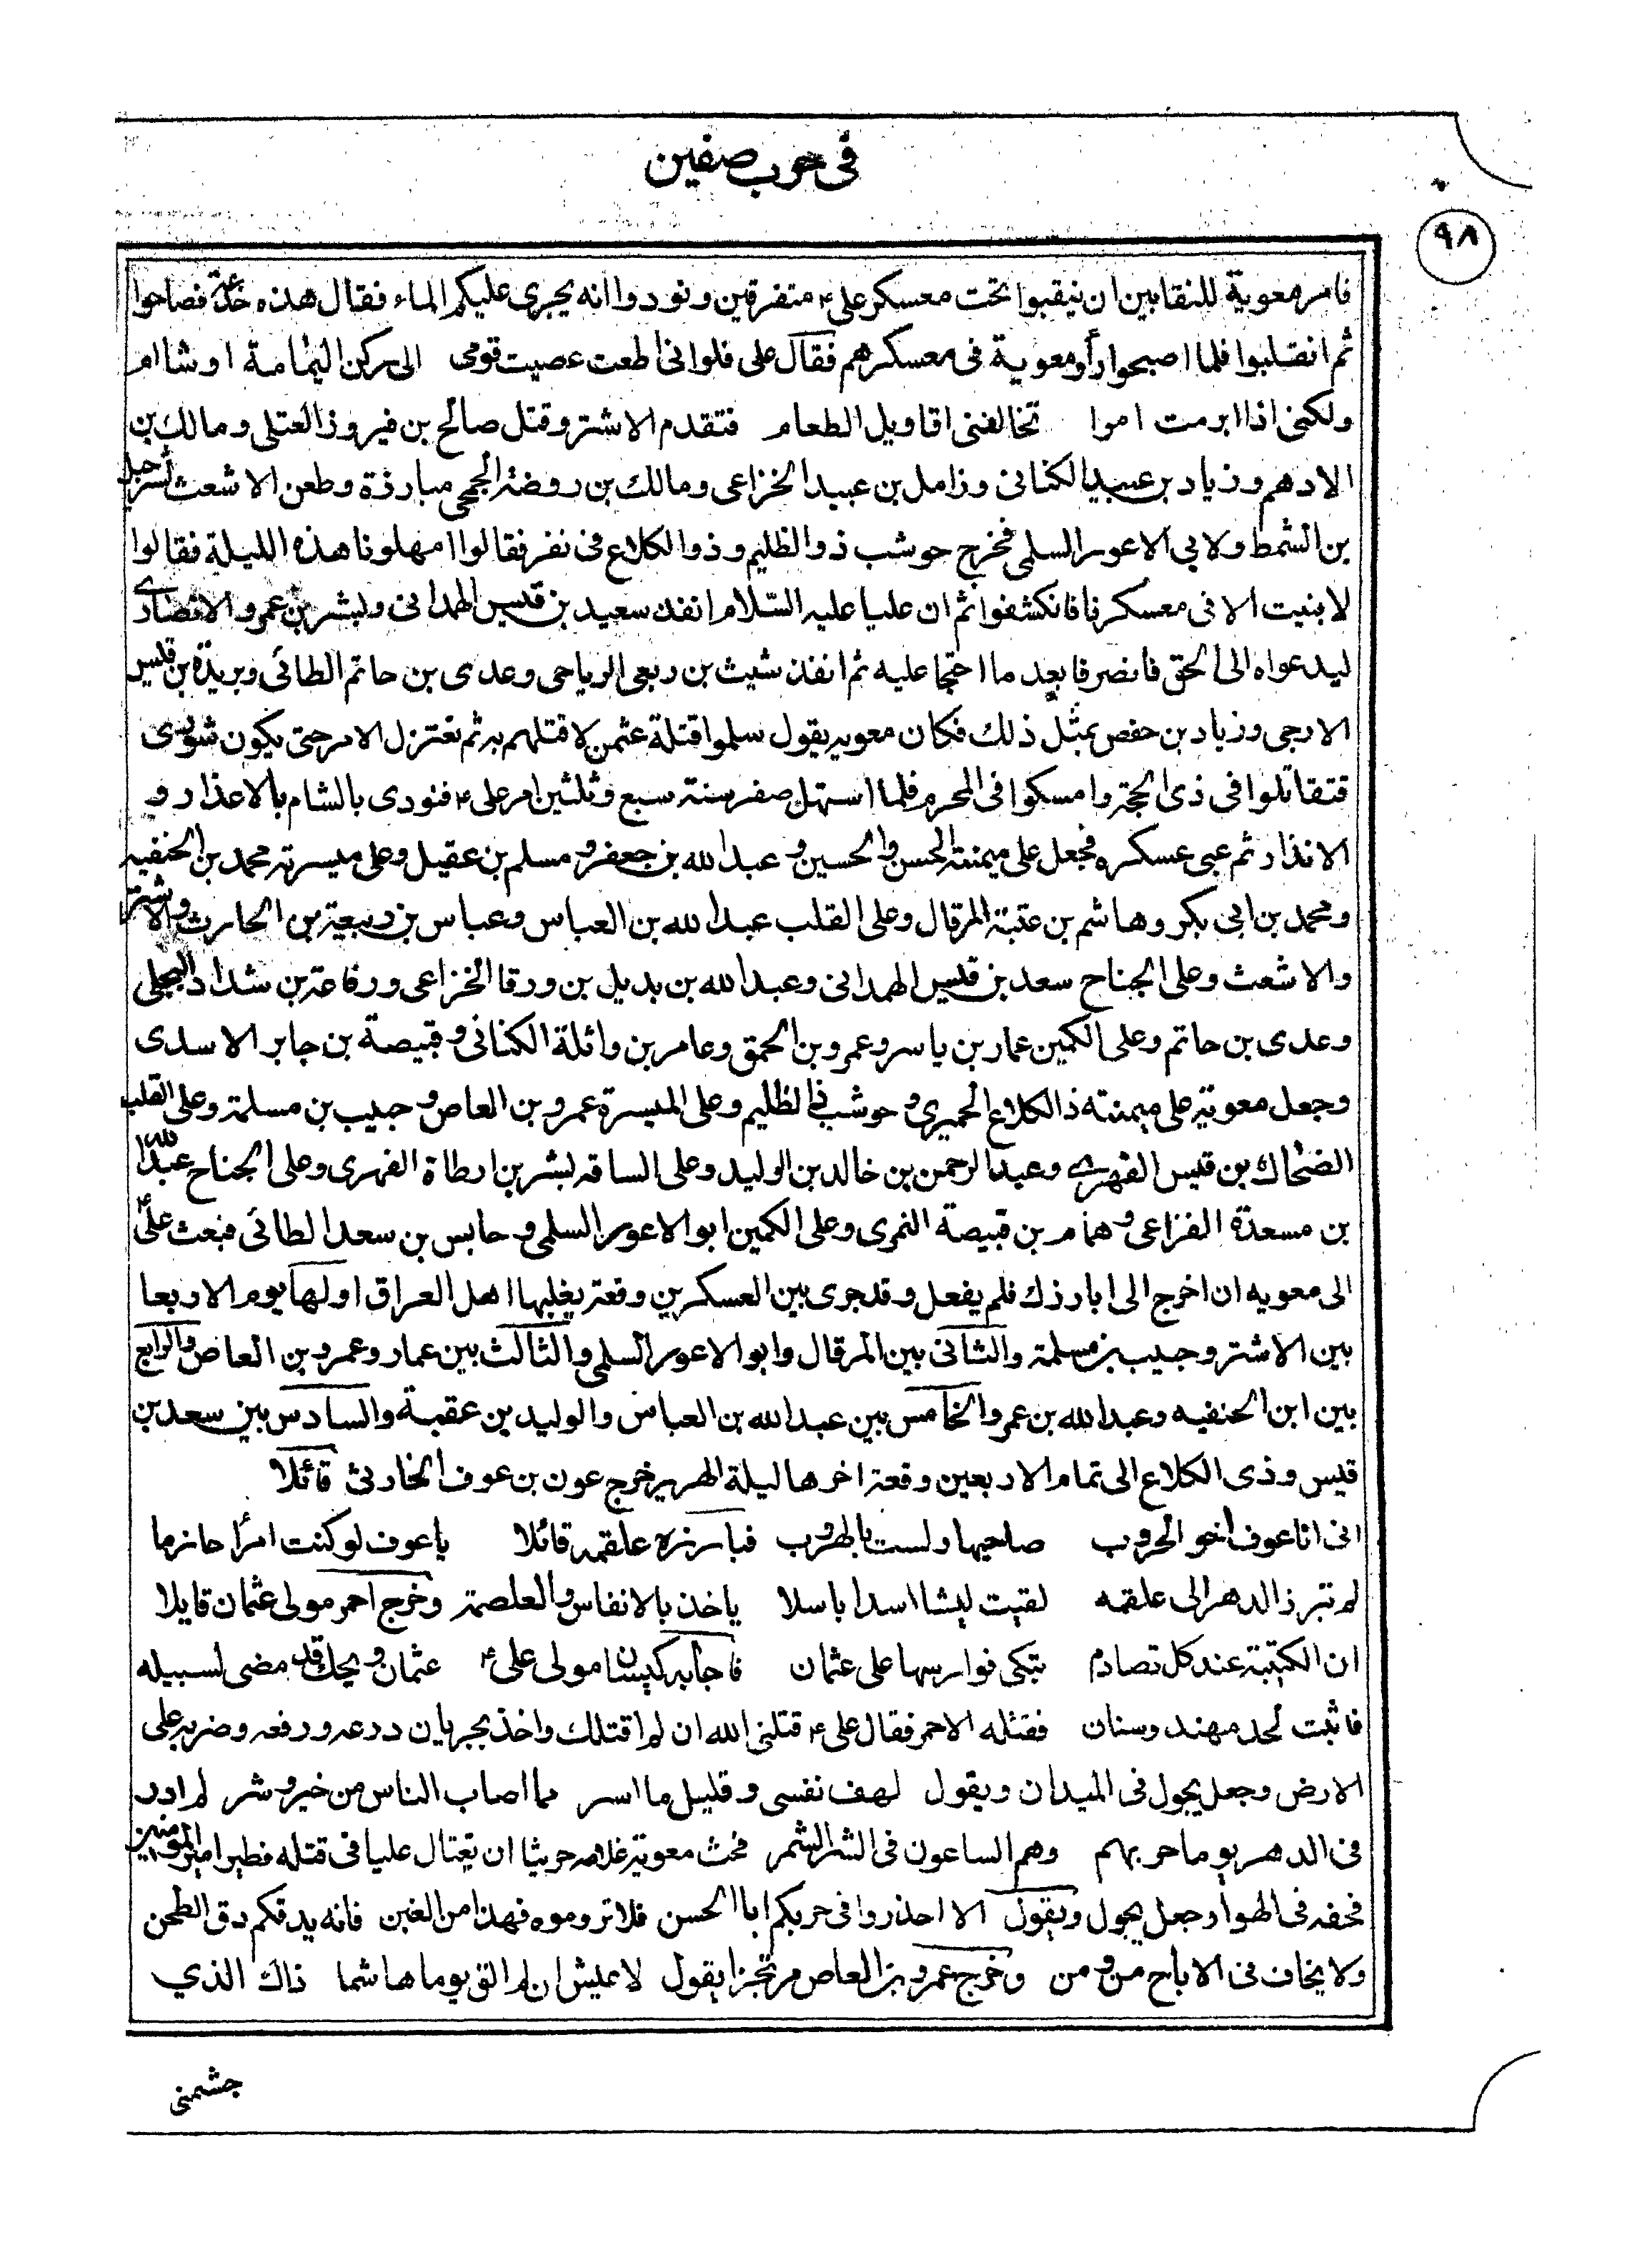 فى حرب صفين
٩٨
فامر معوية للنقابين ان ينقبوا تحت معسكر على ۴ متفرقين ونودوا انه يجرى عليكم الماء فقال هذه خدعة فصاحوا
ثم انقلبوا فلما اصبحوا رأو معوية فى معسكرهم فقال على فلو انى اطعت عصيت قومى الى ركن اليمامة او شاام
ولكنى اذا ابرمت امرا تخالفنى اقاويل الطعام فتقدم الاشتر وقتل صالح بن فيروز العتلى ومالك بن
الادهم وزياد بن عبيد الكنانى وزامل بن عبيد الخزاعى ومالك بن روضة الجمحى مبارزة وطعن الاشعث لشرحبيل
بن السمط ولابى الاعور السلمى فخرج حوشب ذو الظليم وذو الكلاع فى نفر فقالوا امهلونا هذه الليلة فقالوا
لا بنيت الا فى معسكرنا فانكشفوا ثم ان عليا عليه السّلام انفذ سعيد بن قيس الهمدانى وبشر بن عمرو الانصارى
ليدعواه الى الحق فانصرفا بعد ما احتجا عليه ثم انفذ شيث بن ربعى الرياحى وعدى بن حاتم الطائى وبريدة بن قيس
الارجى وزياد بن حفص بمثل ذلك فكان معويه يقول سلموا قتلة عثمن لاقتلهم به ثم نعتزل الامر حتى يكون شورى
فتقاتلوا فى ذى الحجة وامسكوا فى المحرم فلما استهل صفر سنة سبع وثلثين امر على ۴ فنودى بالشام بالاعذار و
الانذار ثم عبى عسكره فجعل على ميمنته الحسن والحسين و عبد الله بن جعفر و مسلم بن عقيل وعلى ميسرته محمد بن الحنفيه
ومحمد بن ابى بكر وهاشم بن عتبة المرقال وعلى القلب عبد الله بن العباس وعباس بن ربيعة بن الحارث والاشتر
والاشعث وعلى الجناح سعد بن قيس الهمدانى وعبد الله بن بديل بن ورقا الخزاعى ورفاعة بن شداد البجلى
وعدى بن حاتم وعلى الكمين عمار بن ياسر وعمرو بن الحمق وعامر بن واثلة الكنانى وقبيصة بن جابر الاسدى
وجعل معوية على ميمنته ذا الكلاع الحميرى و حوشب ذا الظليم وعلى الميسرة عمرو بن العاص و حبيب بن مسلمة وعلى القلب
الضحاك بن قيس الفهرى وعبد الرحمن بن خالد بن الوليد وعلى الساقه بشر بن ارطاة الفهرى وعلى الجناح عبد الله
بن مسعدة الفزاعى و همام بن قبيصة النمرى وعلى الكمين ابو الاعور السلمى و حابس بن سعد الطائى فبعث على ۴
الى معويه ان اخرج الى ابارزك فلم يفعل وقد جرى بين العسكرين وقعة يغلبها اهل العراق اولها يوم الاربعا
بين الاشتر وحبيب بن مسلمة والثانى بين المرقال وابو الاعور السلمى والثالث بين عمار وعمرو بن العاص والرابع
بين ابن الحنفيه وعبد الله بن عمر والخامس بين عبد الله بن العباس والوليد بن عقبة والسادس بين سعد بن
قيس وذى الكلاع الى تمام الاربعين وقعة اخرها ليلة الهرير خرج عون بن عوف الحارثى قائلا
انى انا عوف اخو الحروب صاحبها ولست بالهروب فبارزه علقمه قائلا يا عوف لو كنت امرأ حازما
لم تبرز الدهر الى علقمه لقيت ليثا اسدا باسلا ياخذ بالانفاس والعلصمة وخرج احمر مولى عثمان قايلا
ان الكتيبة عند كل تصادم تبكى فوارسها على عثمان فاجابه كيسان مولى على ۴ عثمان ويحك قد مضى لسبيله
فاثبت لحد مهند وسنان فقتله الاحمر فقال على ۴ قتلنى الله ان لم اقتلك واخذ بجربان درعه ورفعه وضربه على
الارض وجعل يجول فى الميدان ويقول لهف نفسى وقليل ما اسر ما اصاب الناس من خير و شر لم ارد
فى الدهر يوما حربهم وهم الساعون فى الشر الشمر فحث معوية غلامه حريثا ان يغتال عليا فى قتله فطير امير المومنين
قحفه فى الهوا وجعل يجول ويقول الا احذروا فى حربكم ابا الحسن فلا تروموه فهذا من الغبن فانه يدقكم دق الطحن
ولا يخاف فى الاباح من و من وخرج عمرو بن العاص مرتجزا يقول لا عيش ان لم الق يوما هاشما ذاك الذي
جشمنى